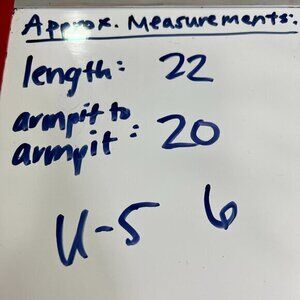 Approx. Measurements:
length: 22
armpit to
armpit: 20
U-5 6